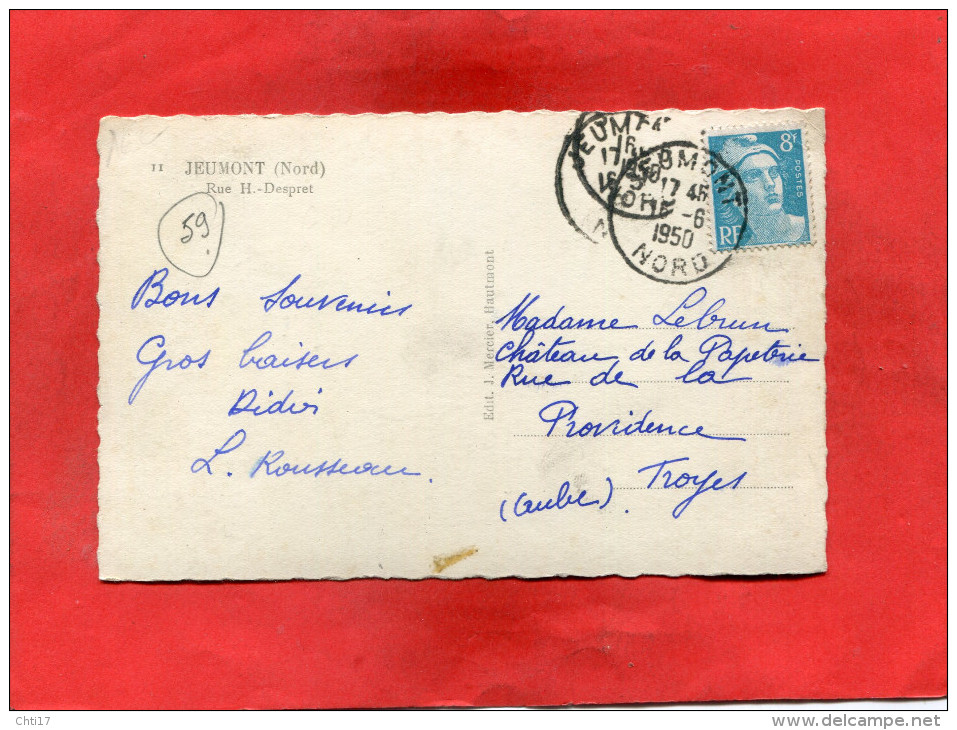 11 JEUMONT (Nord)
Rue H.-Despret
59
Bons Souvenirs
Gros baisers
L. Rousseau.
Edit. J. Mercier, Hautmont
JEUMONT
17 45
16 -6
1950
NORD
8F
POSTES
RF
Madame Lebrun
Château de la Papeterie
Rue de la
Providence
Troyes
(Aube).
Chti17
www.delcampe.net